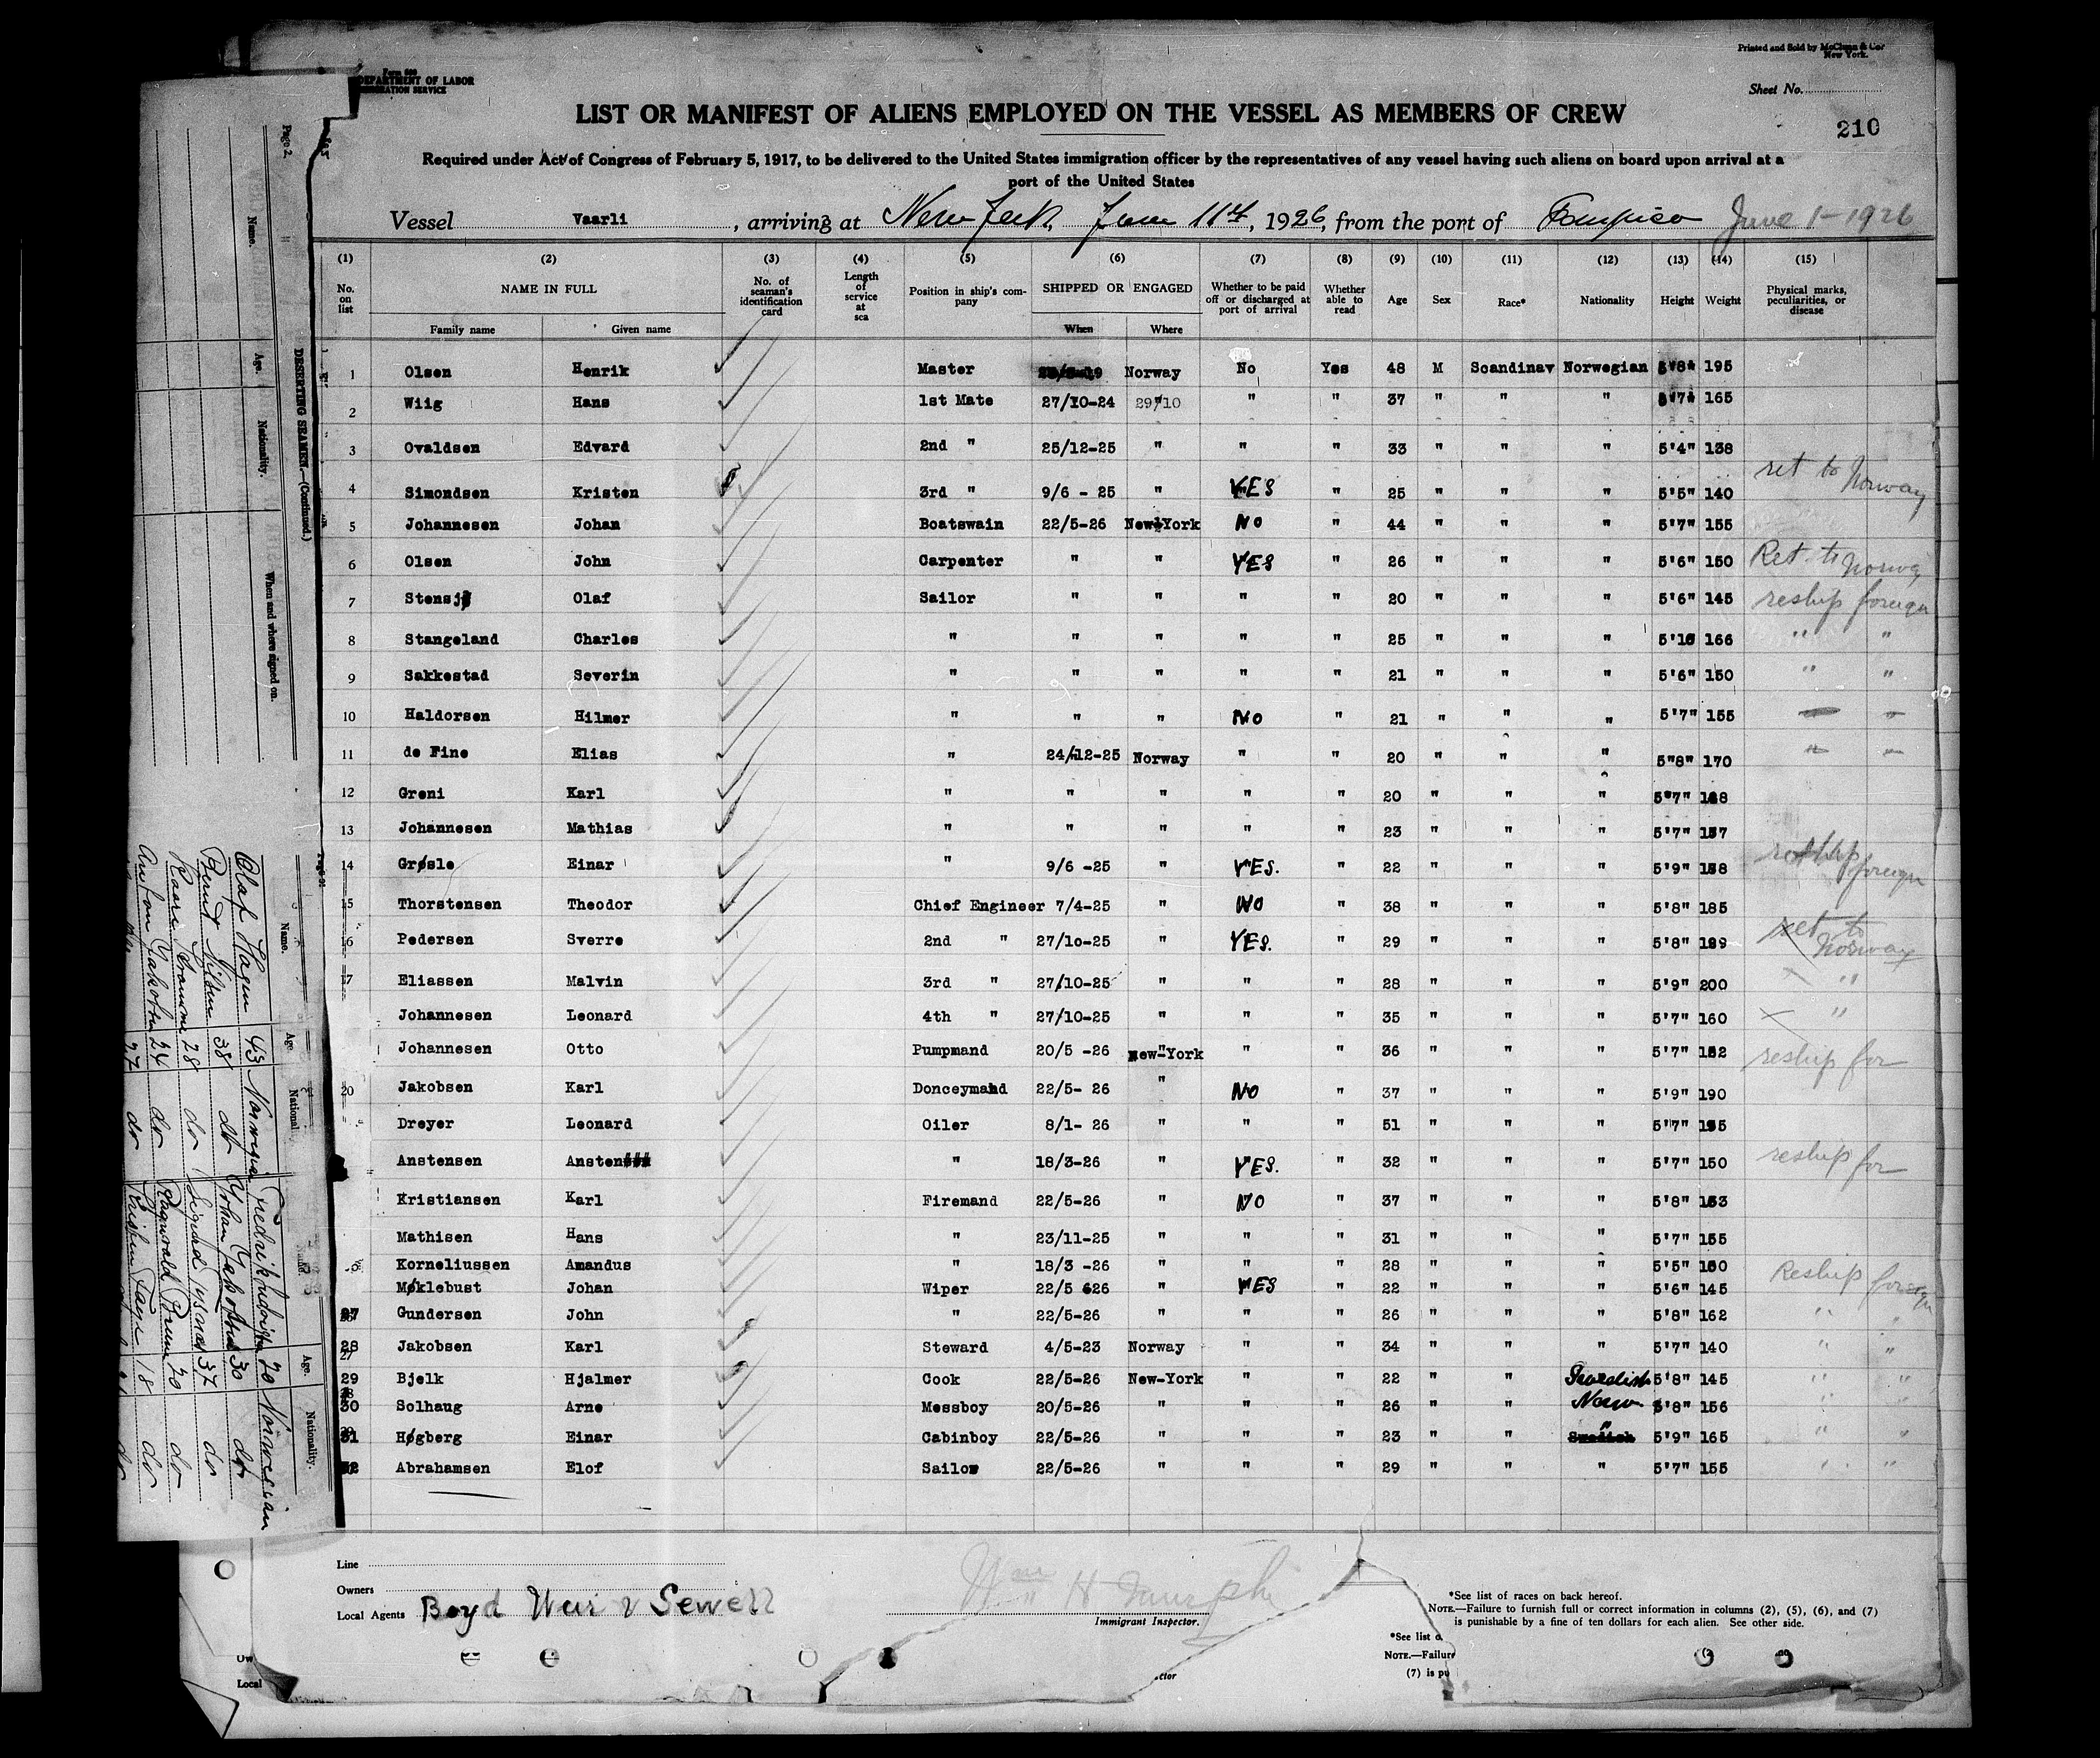 Printed and Sold by McClunn & Co.
New York.
Form 680
DEPARTMENT OF LABOR
IMMIGRATION SERVICE
Sheet No.
LIST OR MANIFEST OF ALIENS EMPLOYED ON THE VESSEL AS MEMBERS OF CREW
210
Required under Act of Congress of February 5, 1917, to be delivered to the United States immigration officer by the representatives of any vessel having such aliens on board upon arrival at a
port of the United States
Vessel Vaarli, arriving at New York, June 11th, 1926, from the port of Tampico June 1-1926
(1) (2) (3) (4) (5) (6) (7) (8) (9) (10) (11) (12) (13) (14) (15)
No. on list NAME IN FULL No. of seaman's identification card Length of service at sea Position in ship's company SHIPPED OR ENGAGED Whether to be paid off or discharged at port of arrival Whether able to read Age Sex Race* Nationality Height Weight Physical marks, peculiarities, or disease
Family name Given name When Where
1 Olsen Henrik Master Norway No Yes 48 M Scandinav Norwegian 195
2 Wiig Hans 1st Mate 27/10-24 29/10 " " 37 " " " 165
3 Ovaldsen Edvard 2nd " 25/12-25 " " " 33 " " " 5'4" 138
4 Simondsen Kristen 3rd " 9/6 - 25 " YES " 25 " " " 5'5" 140 ret to Norway
5 Johannesen Johan Boatswain 22/5-26 New-York NO " 44 " " " 5'7" 155
6 Olsen John Carpenter " " YES " 26 " " " 5'6" 150 Ret. to Norwa
7 Stensjø Olaf Sailor " " " " 20 " " " 5'6" 145 reship foreign
8 Stangeland Charles " " " " " 25 " " " 5'10 166 " "
9 Sakkestad Severin " " " " " 21 " " " 5'6" 150 " "
10 Haldorsen Hilmer " " " NO " 21 " " " 5'7" 155
11 de Fine Elias " 24/12-25 Norway " " 20 " " " 5"8" 170
12 Greni Karl " " " " " 20 " " " 5"7"
13 Johannesen Mathias " " " " " 23 " " " 5'7" 157
14 Grøsle Einar " 9/6 -25 " YES. " 22 " " " 5'9" 158 reship foreign
15 Thorstensen Theodor Chief Engineer 7/4-25 " NO " 38 " " " 5'8" 185
16 Pedersen Sverre 2nd " 27/10-25 " YES. " 29 " " " 5'8" ret to Norway
17 Eliassen Malvin 3rd " 27/10-25 " " " 28 " " " 5'9" 200 "
Johannesen Leonard 4th " 27/10-25 " " " 35 " " " 5'7" 160 "
Johannesen Otto Pumpmand 20/5 -26 New-York " " 36 " " " 5'7" 152 reship for
20 Jakobsen Karl Donceymand 22/5- 26 " NO " 37 " " " 5'9" 190
Dreyer Leonard Oiler 8/1- 26 " " " 51 " " " 5'7"
Anstensen Ansten " 18/3-26 " YES. " 32 " " " 5'7" 150 reship for
Kristiansen Karl Firemand 22/5-26 " NO " 37 " " " 5'8" 153
Mathisen Hans " 23/11-25 " " " 31 " " " 5'7" 155
Korneliussen Amandus " 18/3 -26 " " " 28 " " " 5'5"
Møklebust Johan Wiper 22/5 626 " YES " 22 " " " 5'6" 145 Reship foreign
27 Gundersen John " 22/5-26 " " " 26 " " " 5'8" 162 " "
28 Jakobsen Karl Steward 4/5-23 Norway " " 34 " " " 5'7" 140 " "
29 Bjelk Hjalmer Cook 22/5-26 New-York " " 22 " " Swedish 5'8" 145 " "
30 Solhaug Arne Messboy 20/5-26 " " " 26 " " Norw 5'8" 156 " "
31 Høgberg Einar Cabinboy 22/5-26 " " " 23 " " " Swedish 5'9" 165 " "
32 Abrahamsen Elof Sailor 22/5-26 " " " 29 " " " 5'7" 155 " "
Line
Owners
Local Agents Boyd Weir & Sewell
Wm H Murphy
Immigrant Inspector.
*See list of races on back hereof.
NOTE.—Failure to furnish full or correct information in columns (2), (5), (6), and (7)
is punishable by a fine of ten dollars for each alien. See other side.
*See list o
NOTE.—Failure
(7) is pu
ctor
Ow
Local
Page 2
DESERTING SEAMEN.—(Continued.)
Name. Age. Nationality. When and where signed on.
Name. Age. National Name. Age. Nationality.
Olaf Hagen 43 Norwegian Fredrik 20 Norwegian
Bernt Nilsen 38 do Johan 30 do
Kaare 28 do Sigurd 37 do
Anton Jakobsen 24 do Ragnvald Bruun 20 do
27 do 18 do